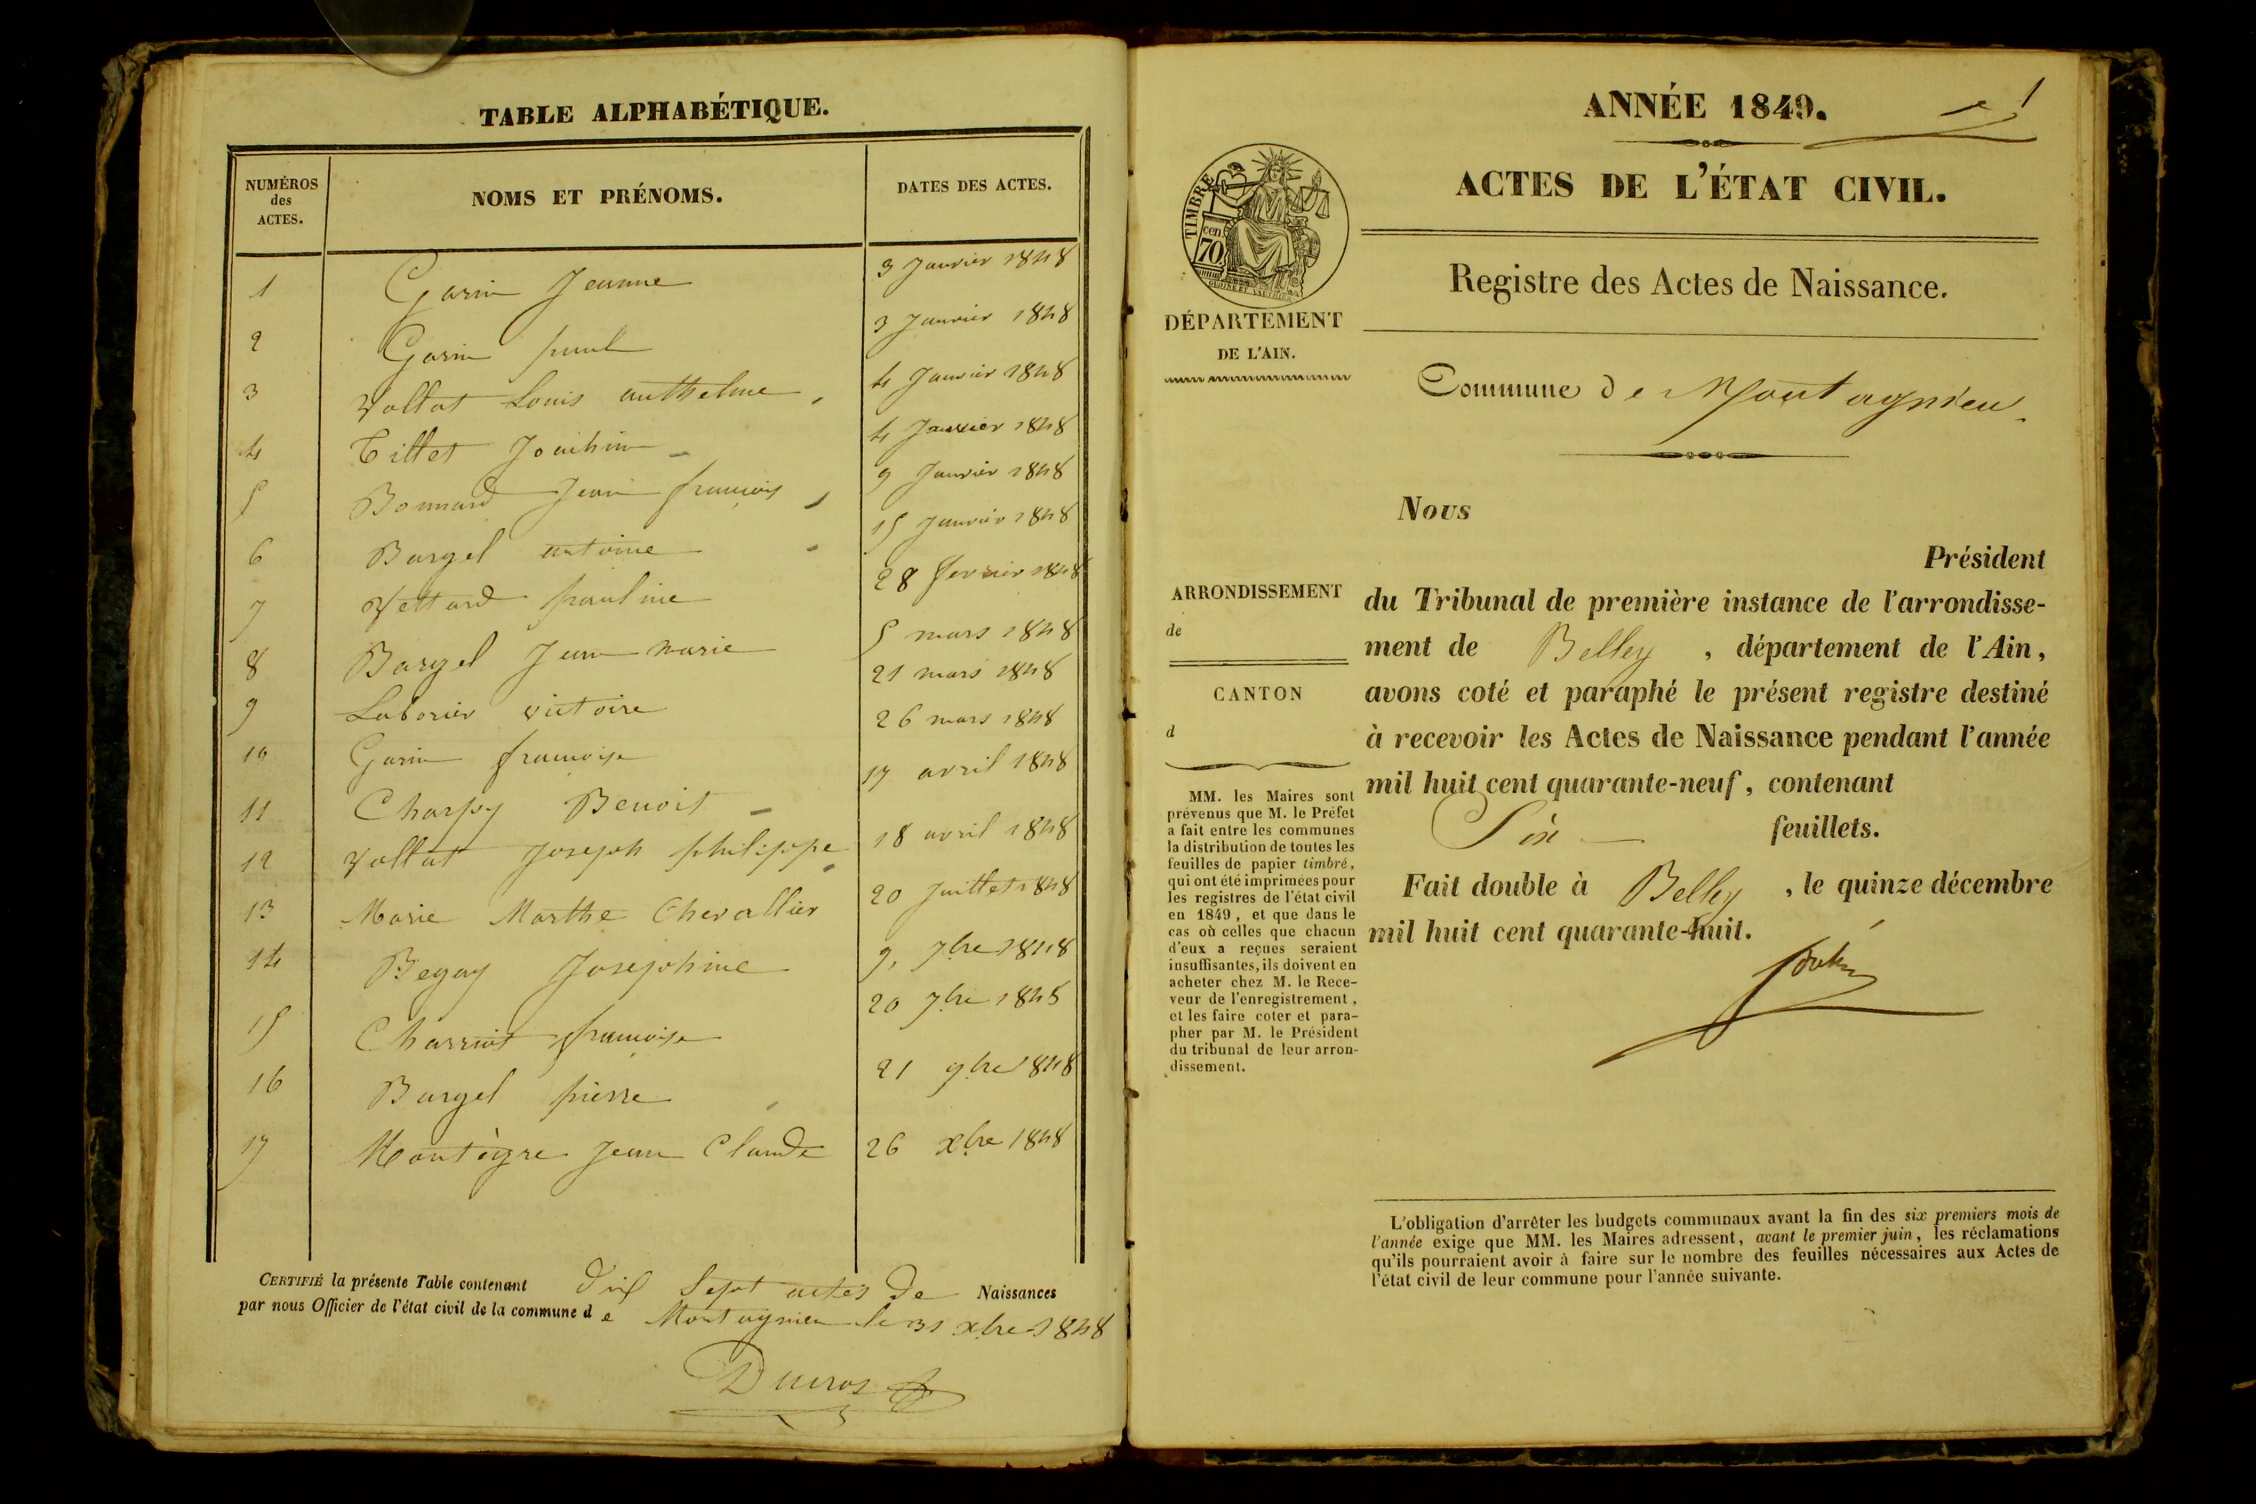 TABLE ALPHABÉTIQUE.
NUMÉROS des ACTES. NOMS ET PRÉNOMS. DATES DES ACTES.
1 Garin Jeanne 3 Janvier 1848
2 Garin paul 3 Janvier 1848
3 Vollat Louis anthelme 4 Janvier 1848
4 Tillet Joachim 4 Janvier 1848
5 Bonnard Jean françois 9 Janvier 1848
6 Bargel antoine 15 Janvier 1848
7 Vettard pauline 28 fevrier 1848
8 Bargel Jean marie 5 mars 1848
9 Laborier victoire 21 mars 1848
10 Garin francoise 26 mars 1848
11 Charpy Benoit 17 avril 1848
12 Vollat Joseph philippe 18 avril 1848
13 Marie Marthe Chevallier 20 Juillet 1848
14 Begay Josephine 9, 7bre 1848
15 Charriot francoise 20 7bre 1848
16 Bargel pierre 21 9bre 1848
17 Montègre Jean Claude 26 xbre 1848
CERTIFIÉ la présente Table contenant dix Sept actes de Naissances
par nous Officier de l'état civil de la commune de Montagnieu le 31 xbre 1848
Ducros
1
ANNÉE 1849.
ACTES DE L'ÉTAT CIVIL.
TIMBRE
70 cen
Registre des Actes de Naissance.
DÉPARTEMENT
DE L'AIN.
Commune de Montagnieu
Nous
Président
du Tribunal de première instance de l'arrondisse-
ment de Belley, département de l'Ain,
avons coté et paraphé le présent registre destiné
à recevoir les Actes de Naissance pendant l'année
mil huit cent quarante-neuf, contenant
Six feuillets.
Fait double à Belley, le quinze décembre
mil huit cent quarante-huit.
ARRONDISSEMENT
de
CANTON
d
MM. les Maires sont
prévenus que M. le Préfet
a fait entre les communes
la distribution de toutes les
feuilles de papier timbré,
qui ont été imprimées pour
les registres de l'état civil
en 1849, et que dans le
cas où celles que chacun
d'eux a reçues seraient
insuffisantes, ils doivent en
acheter chez M. le Rece-
veur de l'enregistrement,
et les faire coter et para-
pher par M. le Président
du tribunal de leur arron-
dissement.
L'obligation d'arrêter les budgets communaux avant la fin des six premiers mois de
l'année exige que MM. les Maires adressent, avant le premier juin, les réclamations
qu'ils pourraient avoir à faire sur le nombre des feuilles nécessaires aux Actes de
l'état civil de leur commune pour l'année suivante.